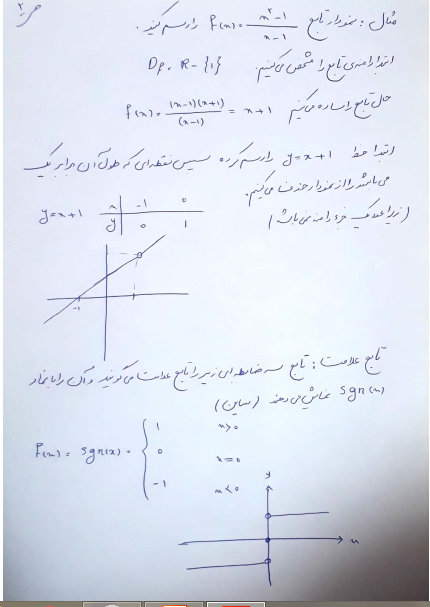 ص ۲
مثال : نمودار تابع f(x) = x²-1 / x-1 را رسم کنید.
ابتدا دامنه‌ی تابع را مشخص می‌کنیم. Df = R - {1}
حال تابع را ساده می‌کنیم f(x) = (x-1)(x+1) / (x-1) = x+1
ابتدا خط y = x+1 را رسم کرده سپس نقطه‌ای که طول آن برابر یک
می‌باشد را از نمودار حذف می‌کنیم.
(زیرا عدد یک جزء دامنه نمی‌باشد)
y = x+1
x -1 0
y 0 1
-1 1
تابع علامت : تابع سه ضابطه‌ای زیر را تابع علامت می‌گویند و آن را با نماد
sgn(x) نمایش می‌دهند (ساین)
f(x) = sgn(x) = {
1 x>0
0 x=0
-1 x<0
y
x